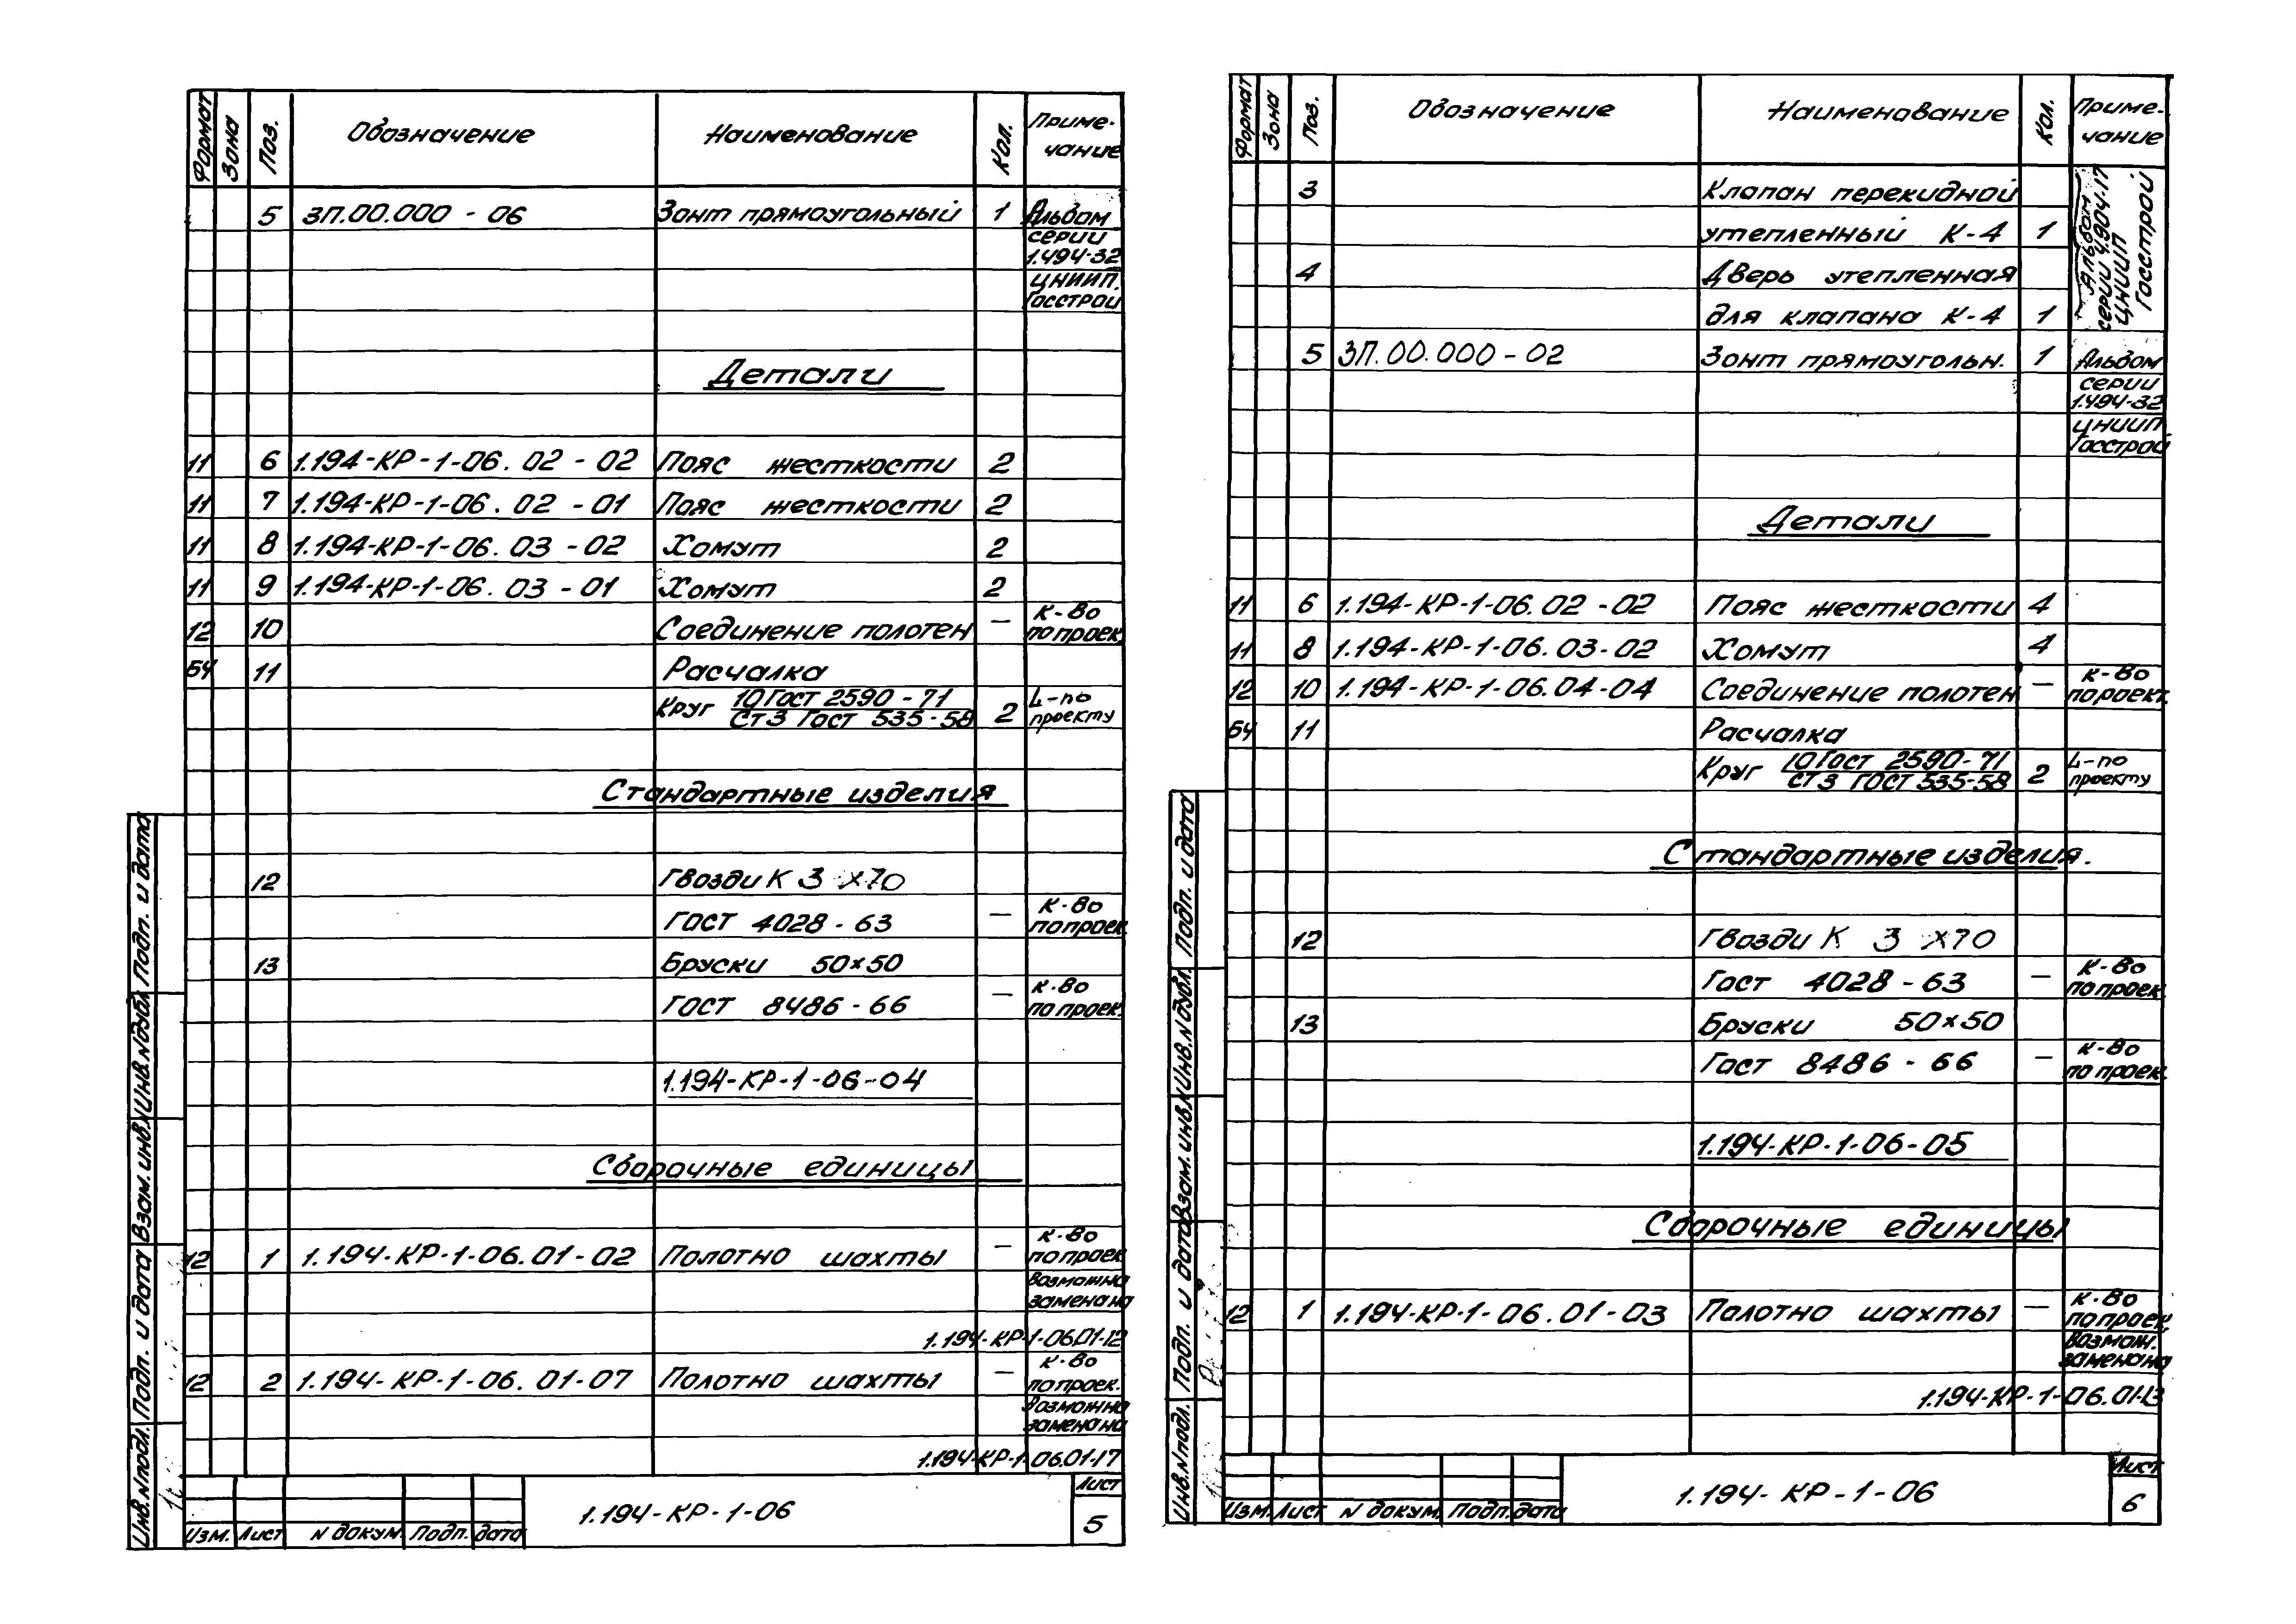 Формат Зона Поз. Обозначение Наименование Кол. Приме-
чание
5 ЗП.00.000 - 06 Зонт прямоугольный 1 Альбом
серии
1.494-32
ЦНИИП.
Госстрой
Детали
11 6 1.194-КР-1-06. 02 - 02 Пояс жесткости 2
11 7 1.194-КР-1-06. 02 - 01 Пояс жесткости 2
11 8 1.194-КР-1-06. 03 - 02 Хомут 2
11 9 1.194-КР-1-06. 03 - 01 Хомут 2
12 10 Соединение полотен — к-во
по проек.
БЧ 11 Расчалка
Круг 10 Гост 2590 - 71 2 L-по
Ст3 Гост 535-58 проекту
Стандартные изделия
12 Гвозди К 3 х70
Гост 4028 - 63 — к-во
по проек
13 Бруски 50×50
Гост 8486 - 66 — к-во
по проек.
1.194-КР-1-06-04
Сборочные единицы
12 1 1.194-КР-1-06.01-02 Полотно шахты — к-во
по проек
Возможна
замена на
1.194-КР-1-06.01-12
12 2 1.194-КР-1-06. 01-07 Полотно шахты — к-во
по проек.
Возможна
замена на
1.194-КР-1-06.01-17
Изм. Лист N докум. Подп. дата
1.194-КР-1-06
Лист
5
Инв.Nподл. Подп. и дата Взам.инв.N Инв.Nдубл. Подп. и дата
Формат Зона Поз. Обозначение Наименование Кол. Приме-
чание
3 Клапан перекидной
утепленный К-4 1
4 Дверь утепленная
для клапана К-4 1
Альбом
серии 4.904-17
ЦНИИП
Госстрой
5 ЗП.00.000-02 Зонт прямоугольн. 1 Альбом
серии
1.494-32
ЦНИИП.
Госстрой
Детали
11 6 1.194-КР-1-06.02-02 Пояс жесткости 4
11 8 1.194-КР-1-06.03-02 Хомут 4
12 10 1.194-КР-1-06.04-04 Соединение полотен — к-во
по роект.
БЧ 11 Расчалка
Круг 10 Гост 2590-71 2 L-по
Ст3 Гост 535-58 проекту
Стандартные изделия.
12 Гвозди К 3 х70
Гост 4028 - 63 — к-во
по проек.
13 Бруски 50×50
Гост 8486 - 66 — к-во
по проек.
1.194-КР-1-06-05
Сборочные единицы
12 1 1.194-КР-1-06.01-03 Полотно шахты — к-во
по проек.
Возмож.
замена на
1.194-КР-1-06.01-13
Изм. Лист N докум. Подп. дата
1.194-КР-1-06
Лист
6
Инв.Nподл. Подп. и дата Взам.инв.N Инв.Nдубл. Подп. и дата